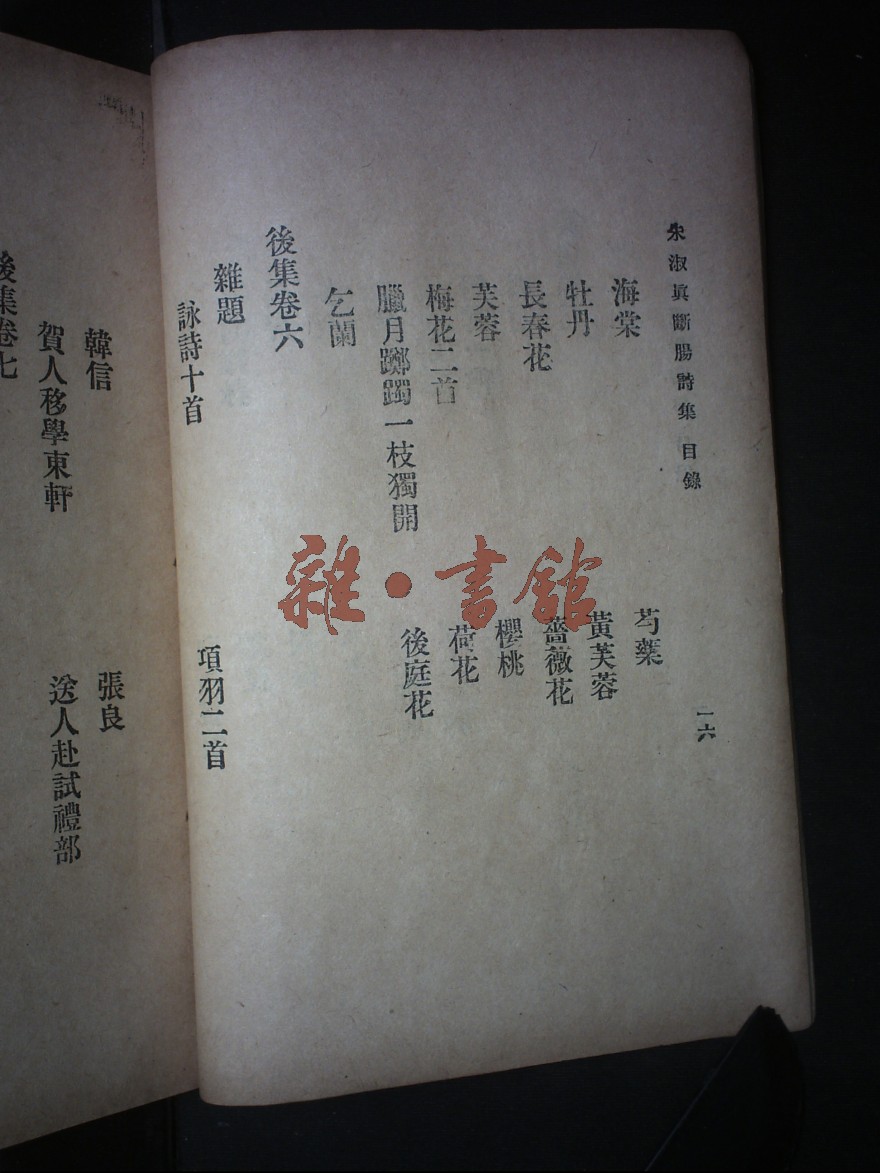 朱淑眞斷腸詩集 目錄
一六
海棠
芍藥
牡丹
黃芙蓉
長春花
薔薇花
芙蓉
櫻桃
梅花二首
荷花
臘月躑躅一枝獨開
後庭花
乞蘭
後集卷六
雜題
詠詩十首
項羽二首
韓信
張良
賀人移學東軒
送人赴試禮部
後集卷七
雜·書館